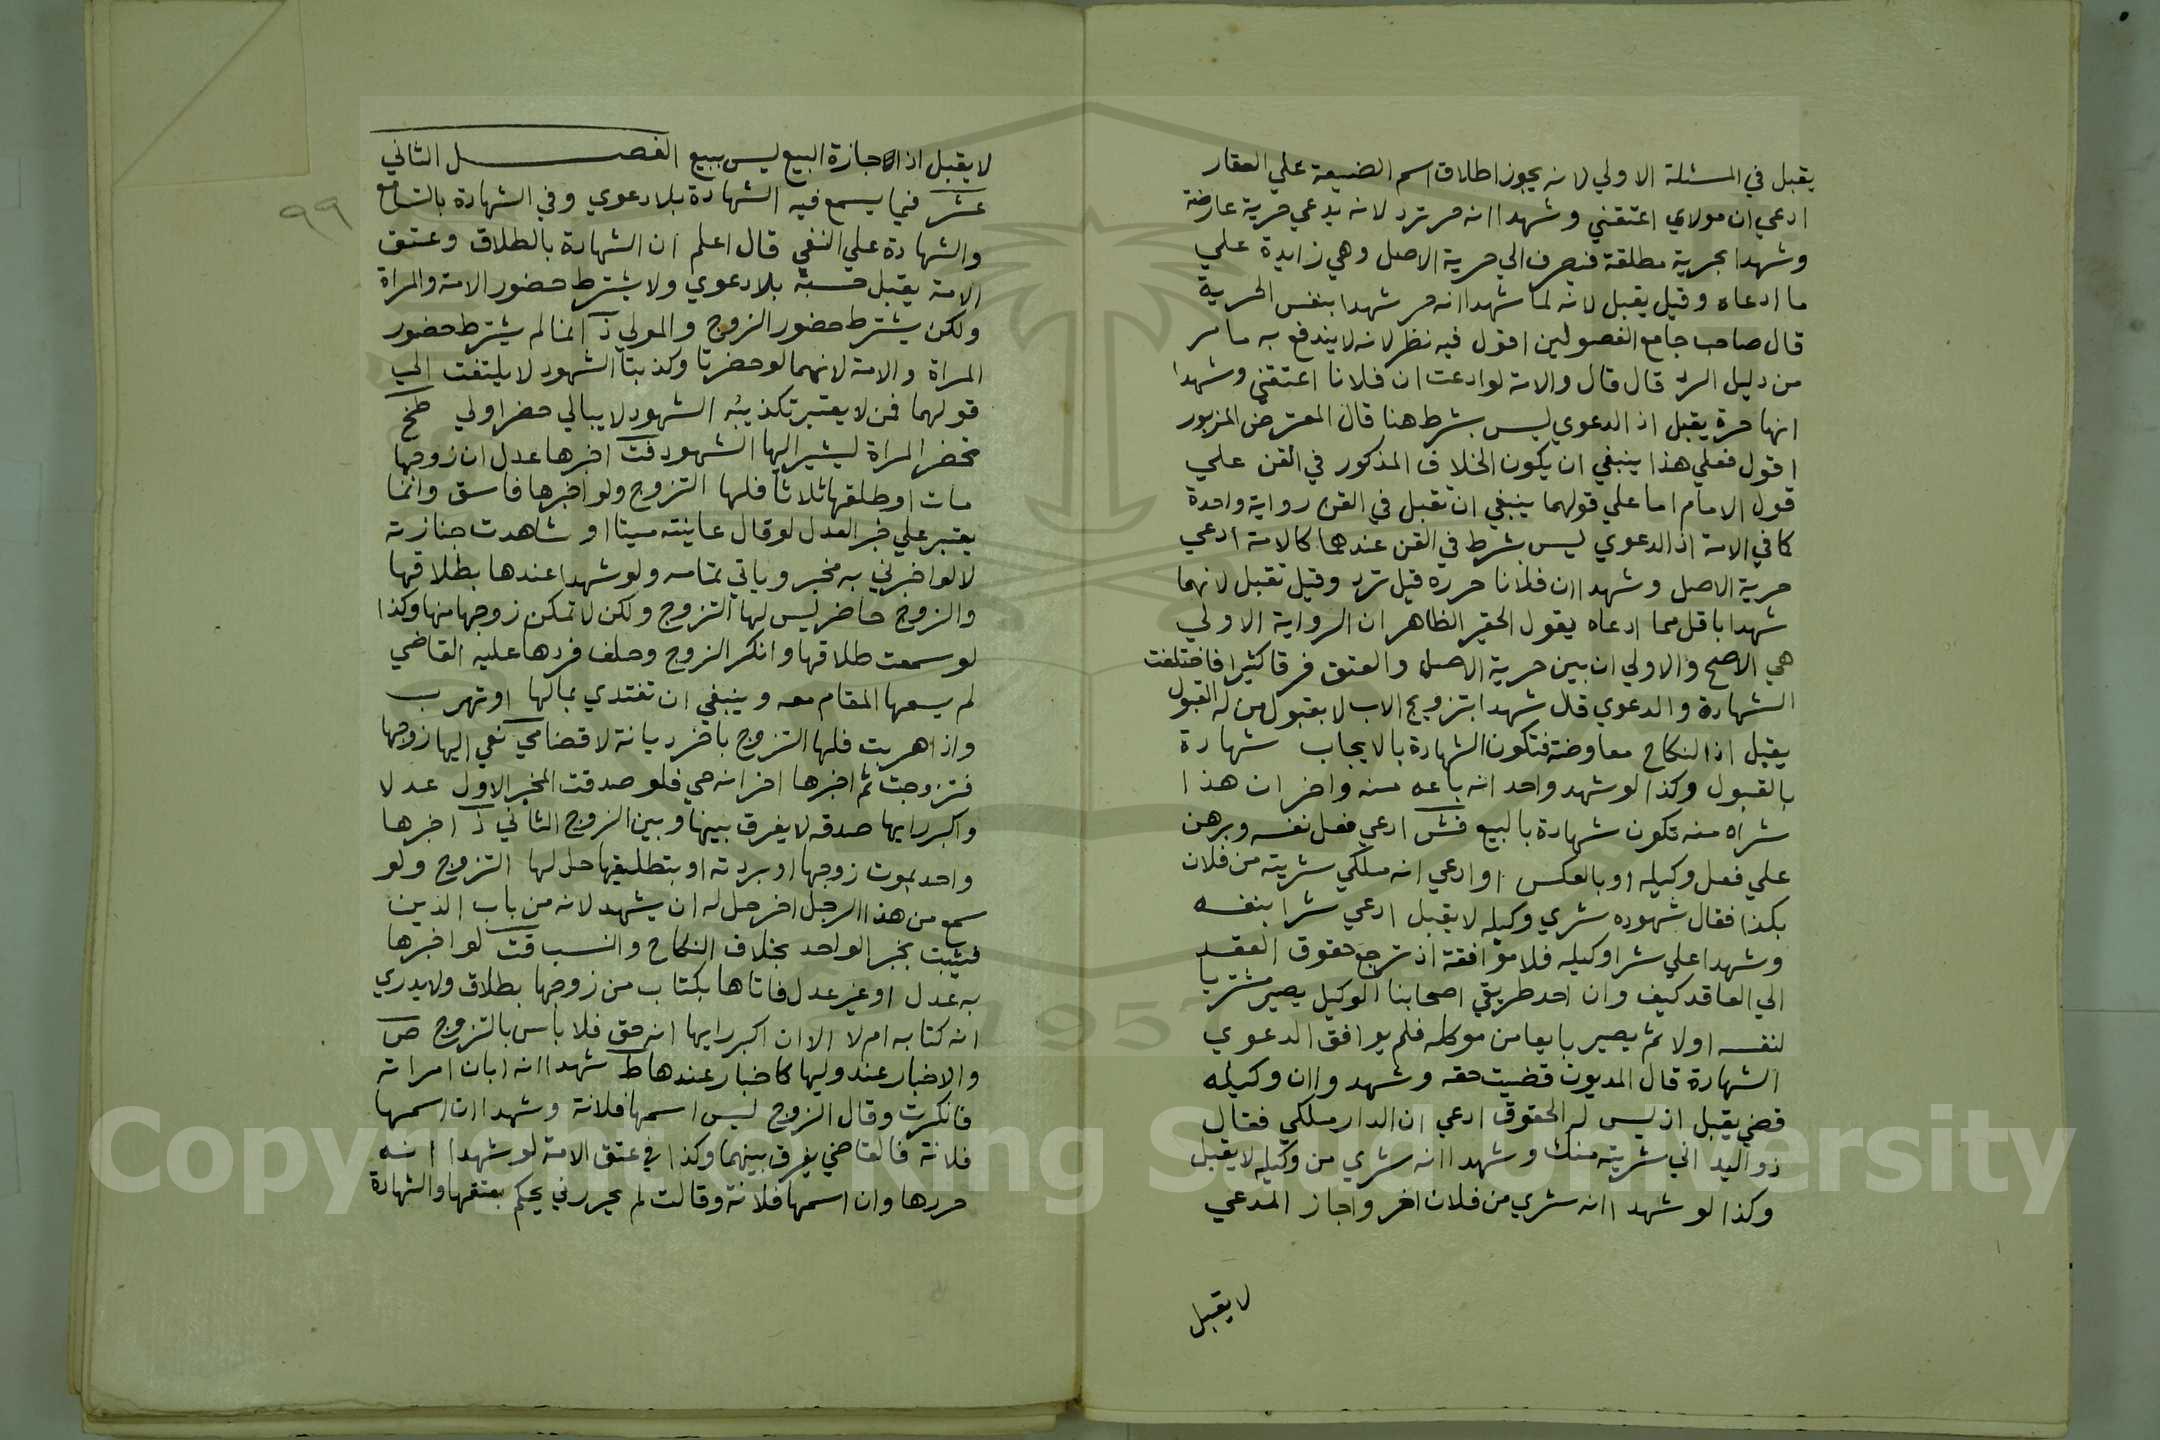 يقبل في المسئلة الاولي لانه يجوز اطلاق اسم الضيعة علي العقار
ادعي ان مولاي اعتقني وشهدا انه حر ترد لانه يدعي حرية عارضة
وشهدا بحرية مطلقة فيصرف الي حرية الاصل وهي زايدة علي
ما ادعاه وقيل يقبل لانه لما شهدا انه حر شهدا بنفس الحرية
قال صاحب جامع الفصولين اقول فيه نظر لانه لا يندفع به ما مر
من دليل الرد قال قال والامة لو ادعت ان فلانا اعتقني وشهدا
انها حرة يقبل اذ الدعوي ليس بشرط هنا قال المعترض المزبور
اقول فعلي هذا ينبغي ان يكون الخلاف المذكور في القن علي
قول الامام اما علي قولهما ينبغي ان تقبل في القن رواية واحدة
كا في الامة اذ الدعوي ليس بشرط في القن عندهما كالامة ادعي
حرية الاصل وشهدا ان فلانا حرره قيل ترد وقيل تقبل لانهما
شهدا باقل مما ادعاه يقول الحقير الظاهر ان الرواية الاولي
هي الاصح والاولي ان بين حرية الاصل والعتق فرقا كثيرا فاختلفت
الشهادة والدعوي قال شهدا بتزويج الاب لا بقبول من له القبول
يقبل اذ النكاح معاوضة فتكون الشهادة بالايجاب شهادة
بالقبول وكذا لو شهد واحد انه باعه منه واخر ان هذا
شراه منه تكون شهادة بالبيع فش ادعي فعل نفسه وبرهن
علي فعل وكيله او بالعكس او ادعي انه ملكي شريته من فلان
بكذا فقال شهوده شري وكيله لا يقبل ادعي شرا بنفسه
وشهدا علي شرا وكيله فلا موافقة اذ ترجع حقوق العقد
الي العاقد كيف وان احد طريقي اصحابنا الوكيل يصير مشتريا
لنفسه اولا ثم يصير بايعا من موكله فلم يوافق الدعوي
الشهادة قال المديون قضيت حقه وشهدوا ان وكيله
قضي يقبل اذ ليس له الحقوق ادعي ان الدار ملكي فقال
ذو اليد اني شريته منك وشهدا انه شري من وكيله لا يقبل
وكذا لو شهدا انه شري من فلان اخر واجاز المدعي
لا يقبل
٩٩
لا يقبل اذ الاجازة البيع ليس ببيع الفصل الثاني
عشر فيما يسمع فيه الشهادة بلا دعوي وفي الشهادة بالتسامع
والشهادة علي النفي قال اعلم ان الشهادة بالطلاق وعتق
الامة يقبل حسبة بلا دعوي ولا يشترط حضور الامة والمراة
ولكن يشترط حضور الزوج والمولي ذ انما لم يشترط حضور
المراة والامة لانهما لو حضرتا وكذبتا الشهود لا يلتفت الي
قولهما فمن لا يعتبر تكذيبه الشهود لا يبالي حضر اولي طخ
تحضر المراة ليشير اليها الشهود فت اخبرها عدل ان زوجها
مات او طلقها ثلاثا فلها التزوج ولو اخبرها فاسق وانما
يعتبر علي خبر العدل لو قال عاينته ميتا او شاهدت جنازته
لا لو اخبرني به مخبر وياتي تمامه ولو شهدا عندها بطلاقها
والزوج حاضر ليس لها التزوج ولكن لا تمكن زوجها منها وكذا
لو سمعت طلاقها وانكر الزوج وحلف فردها عليه القاضي
لم يسعها المقام معه وينبغي ان تفتدي بمالها او تهرب
واذا هربت فلها التزوج باخر ديانة لا قضا نعي اليها زوجها
فتزوجت ثم اخبرها اخر انه حي فلو صدقت المخبر الاول عدلا
واكبر رايها صدقه لا يفرق بينها وبين الزوج الثاني ذ اخبرها
واحد بموت زوجها او بردته او بتطليقها حل لها التزوج ولو
سمع من هذا الرجل اخر حل له ان يشهد لانه من باب الدين
فيثبت بخبر الواحد بخلاف النكاح والنسب قت لو اخبرها
به عدل او غير عدل فاتاها بكتاب من زوجها بطلاق ولا يدري
انه كتابه ام لا الا ان اكبر رايها انه حق فلا باس بالتزوج ص
والاخبار عند وليها كاخبار عندها ط شهدا انه ابان امراته
فانكرت وقال الزوج ليس اسمها فلانة وشهدا ان اسمها
فلانة فالقاضي يفرق بينهما وكذا في عتق الامة لو شهدا انه
حررها وان اسمها فلانة وقالت لم يحررني يحكم بعتقها والشهادة
Copyright © King Saud University
1957